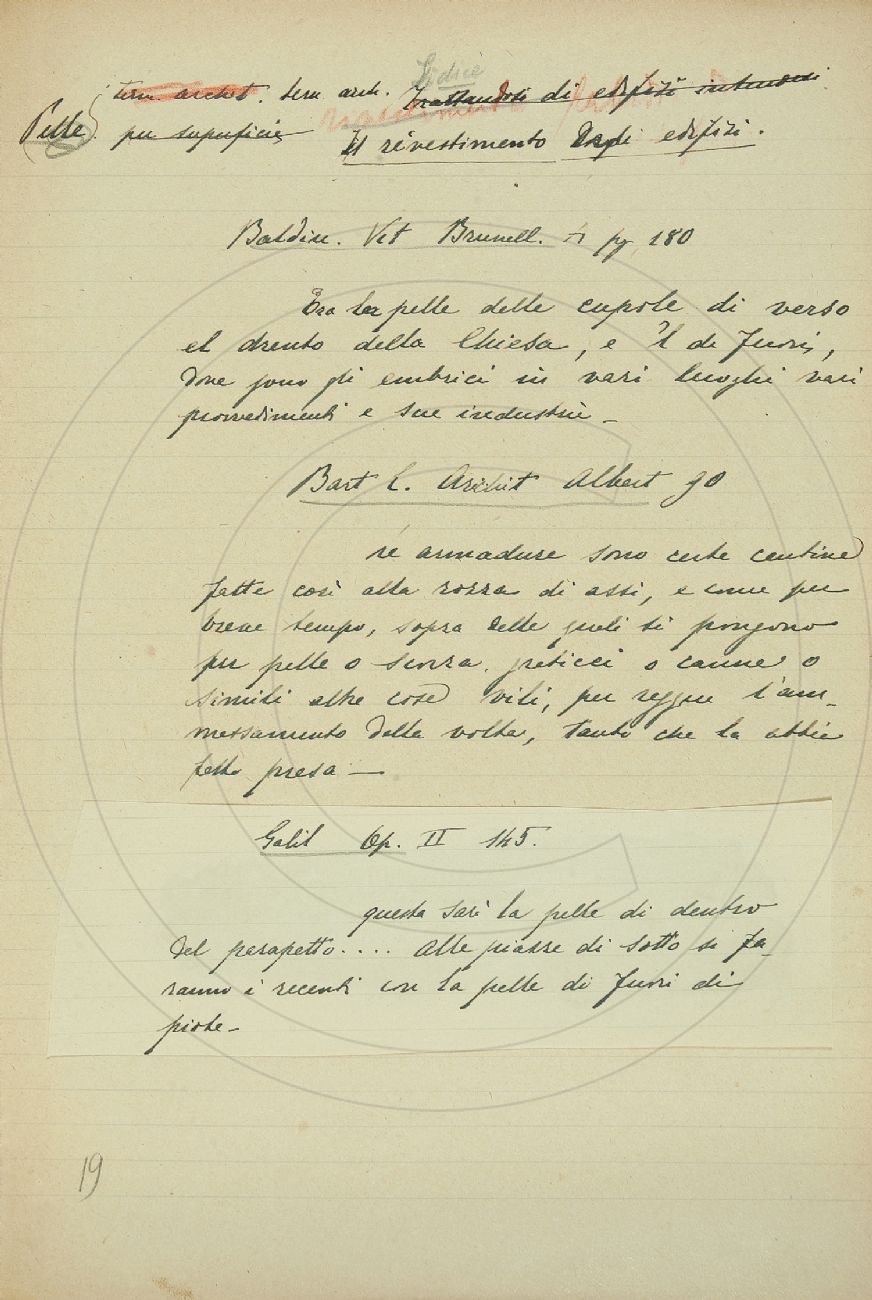 Si dice
term archit. term. arch. Trattandosi di edifizi intendesi
Pelle per superficie
rivestimento
Il rivestimento degli edifizi.
Baldin. Vit Brunell. pg 180
Era la pelle delle cupole di verso
el drento della Chiesa, e 'l di fuori,
dove sono gli embrici in vari luoghi vari
provvedimenti e sue industrie
Bart L. Archit Albert 90
le armadure sono certe centine
fatte così alla rozza di assi, e come per
breve tempo, sopra delle quali si pongono
per pelle o scorza, graticci o canne o
simili altre cose vili, per reggere l'am-
massamento della volta, tanto che la abbia
fatto presa —
Galil Op. II 145.
questa sarà la pelle di dentro
del parapetto.... Alle piazze di sotto si fa-
ranno i recenti con la pelle di fuori di
piote -
19